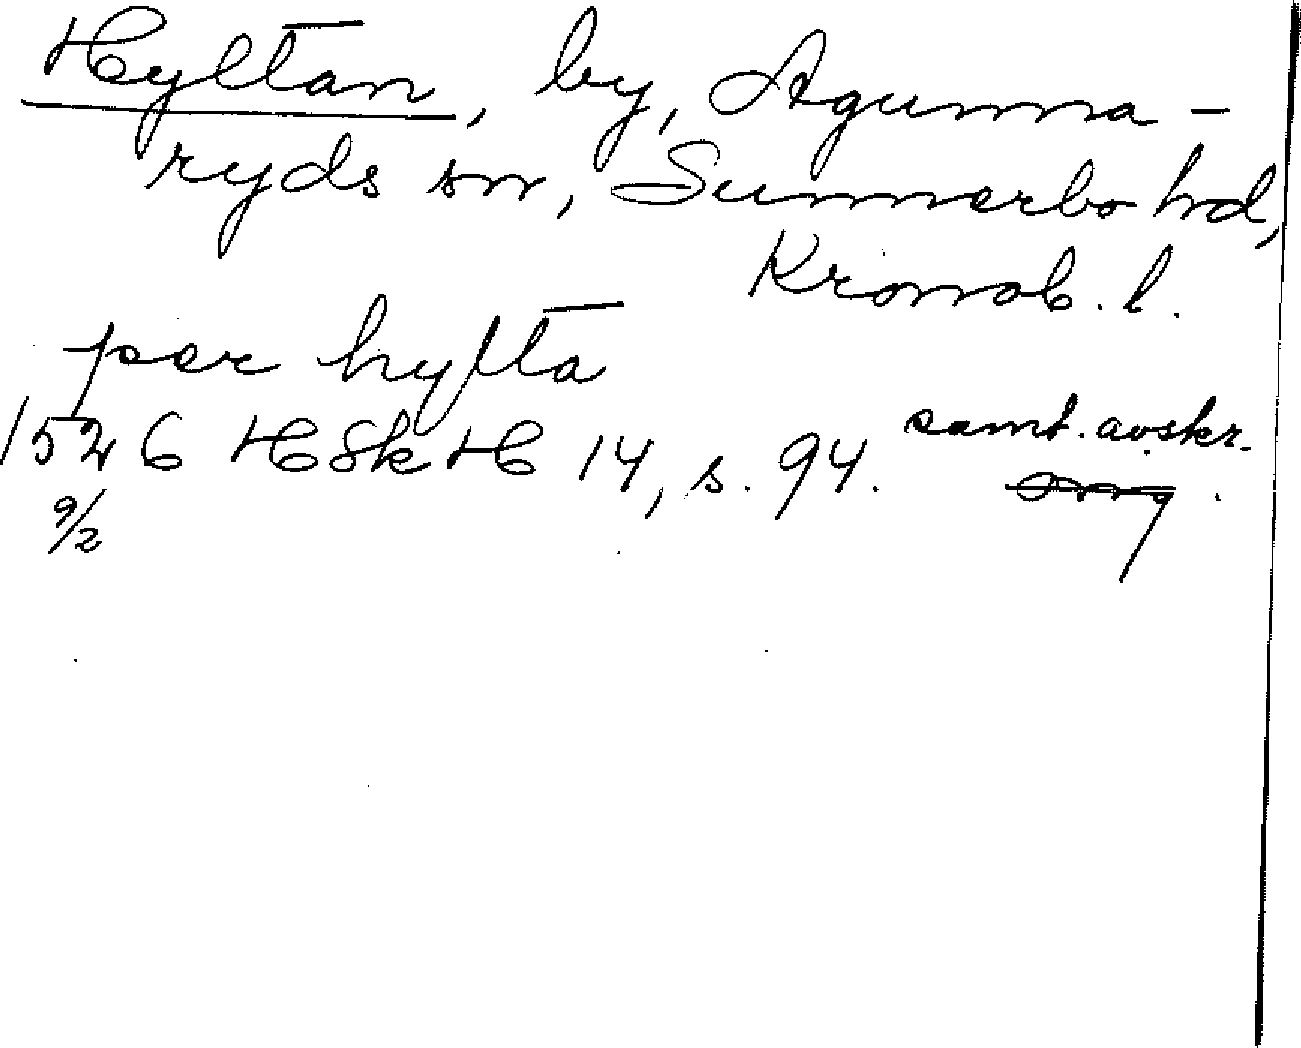 Hyltan, by, Agunna-
ryds sn, Sunnerbo hd,
Kronob. l.
per hylta
1526 HSkH 14, s. 94. samt. avskr.
9/2